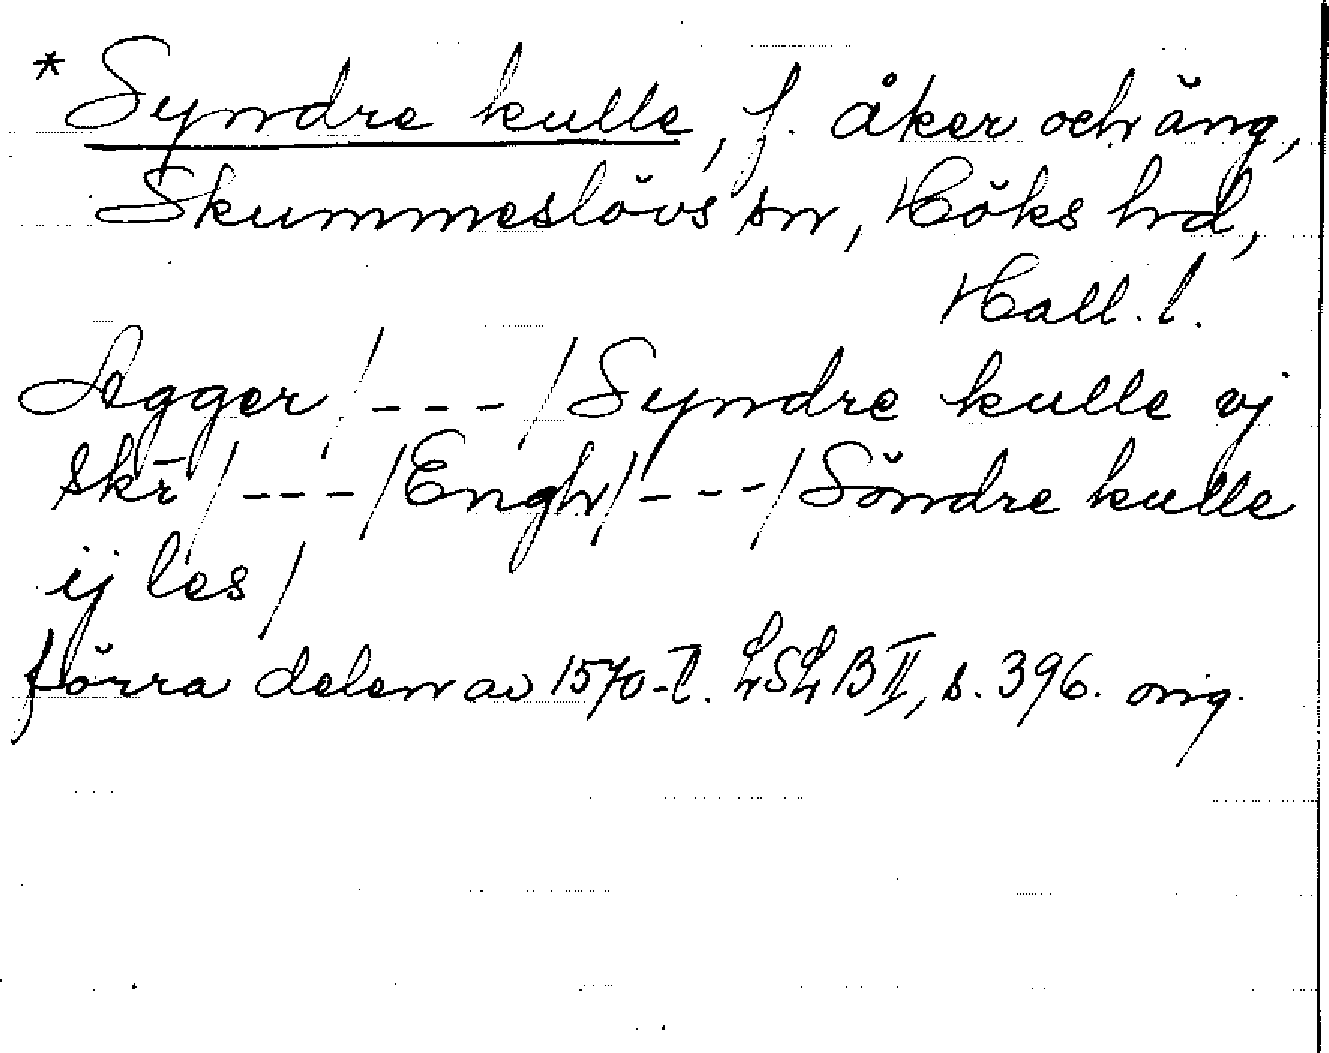 * Syndre kulle, f. åker och äng,
Skummeslövs sn, Höks hd,
Hall. l.
Agger /---/ Syndre kulle vj
skr̄ /---/ Engh /---/ Söndre kulle
ij les /
förra delen av 1570-t. LSLB II, s. 396. orig.